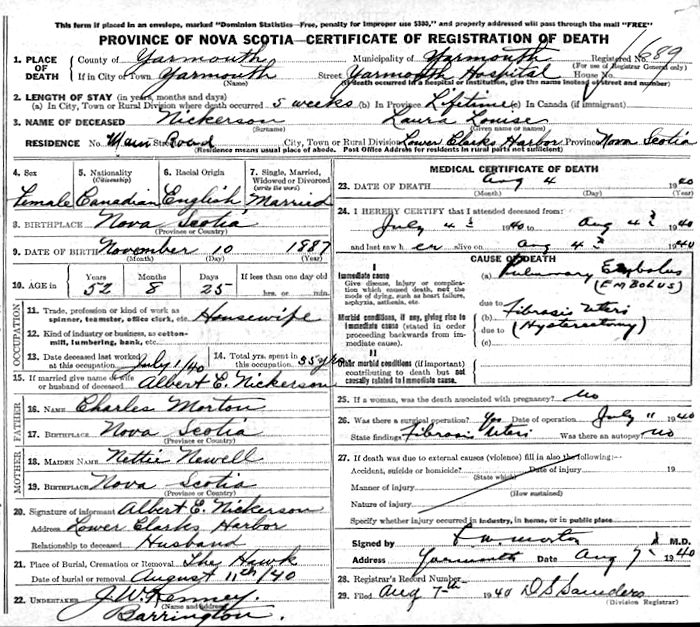 This form if placed in an envelope, marked "Dominion Statistics—Free, penalty for improper use $300," and properly addressed will pass through the mail "FREE"
PROVINCE OF NOVA SCOTIA—CERTIFICATE OF REGISTRATION OF DEATH
1. PLACE OF DEATH County of Yarmouth Municipality of Yarmouth Registered No. 1689
(For use of Registrar General only)
If in City or Town Yarmouth Street Yarmouth Hospital House No.
(Name) (If death occurred in a hospital or institution, give the name instead of street and number)
2. LENGTH OF STAY (in years, months and days)
(a) In City, Town or Rural Division where death occurred 5 weeks (b) In Province Lifetime (c) In Canada (if immigrant)
3. NAME OF DECEASED Nickerson Laura Louise
(Surname) (Given name or names)
RESIDENCE No. Main Street Road City, Town or Rural Division Lower Clarks Harbor Province Nova Scotia
(Residence means usual place of abode. Post Office Address for residents in rural parts not sufficient)
4. Sex 5. Nationality (Citizenship) 6. Racial Origin 7. Single, Married, Widowed or Divorced (write the word)
Female Canadian English Married
8. BIRTHPLACE Nova Scotia
(Province or Country)
9. DATE OF BIRTH November 10 1887
(Month) (Day) (Year)
10. AGE in Years Months Days If less than one day old
52 8 25 hrs. or min.
OCCUPATION
11. Trade, profession or kind of work as spinner, teamster, office clerk, etc. Housewife
12. Kind of industry or business, as cotton-mill, lumbering, bank, etc.
13. Date deceased last worked at this occupation July 1/40 14. Total yrs. spent in this occupation 35 yrs
15. If married give name of wife or husband of deceased Albert E. Nickerson
FATHER
16. NAME Charles Morton
17. BIRTHPLACE Nova Scotia
(Province or Country)
MOTHER
18. MAIDEN NAME Nettie Newell
19. BIRTHPLACE Nova Scotia
(Province or Country)
20. Signature of informant Albert E. Nickerson
Address Lower Clarks Harbor
Relationship to deceased Husband
21. Place of Burial, Cremation or Removal The Hawk
Date of burial or removal August 11th/40
22. UNDERTAKER J. W. Kenney.
(Name and Address)
Barrington.
MEDICAL CERTIFICATE OF DEATH
23. DATE OF DEATH Aug 4 1940
(Month) (Day) (Year)
24. I HEREBY CERTIFY that I attended deceased from:
July 4 1940 to Aug 4 1940
and last saw her alive on Aug 4 1940
CAUSE OF DEATH
I
Immediate cause
Give disease, injury or complication which caused death, not the mode of dying, such as heart failure, asphyxia, asthenia, etc.
(a) Pulmonary Embolus
(EMBOLUS)
due to
Morbid conditions, if any, giving rise to immediate cause (stated in order proceeding backwards from immediate cause).
(b) Fibrosis Uteri
due to (Hysterectomy)
(c)
II
Other morbid conditions (if important) contributing to death but not causally related to immediate cause.
25. If a woman, was the death associated with pregnancy? No
26. Was there a surgical operation? Yes Date of operation July 11 1940
State findings Fibrosis Uteri Was there an autopsy? No
27. If death was due to external causes (violence) fill in also the following:—
Accident, suicide or homicide? Date of injury 19
(State which)
Manner of injury
(How sustained)
Nature of injury
Specify whether injury occurred in industry, in home, or in public place
Signed by Morton M.D.
Address Yarmouth Date Aug 7 1940
28. Registrar's Record Number
29. Filed Aug 7th 1940 D S Saunders
(Division Registrar)